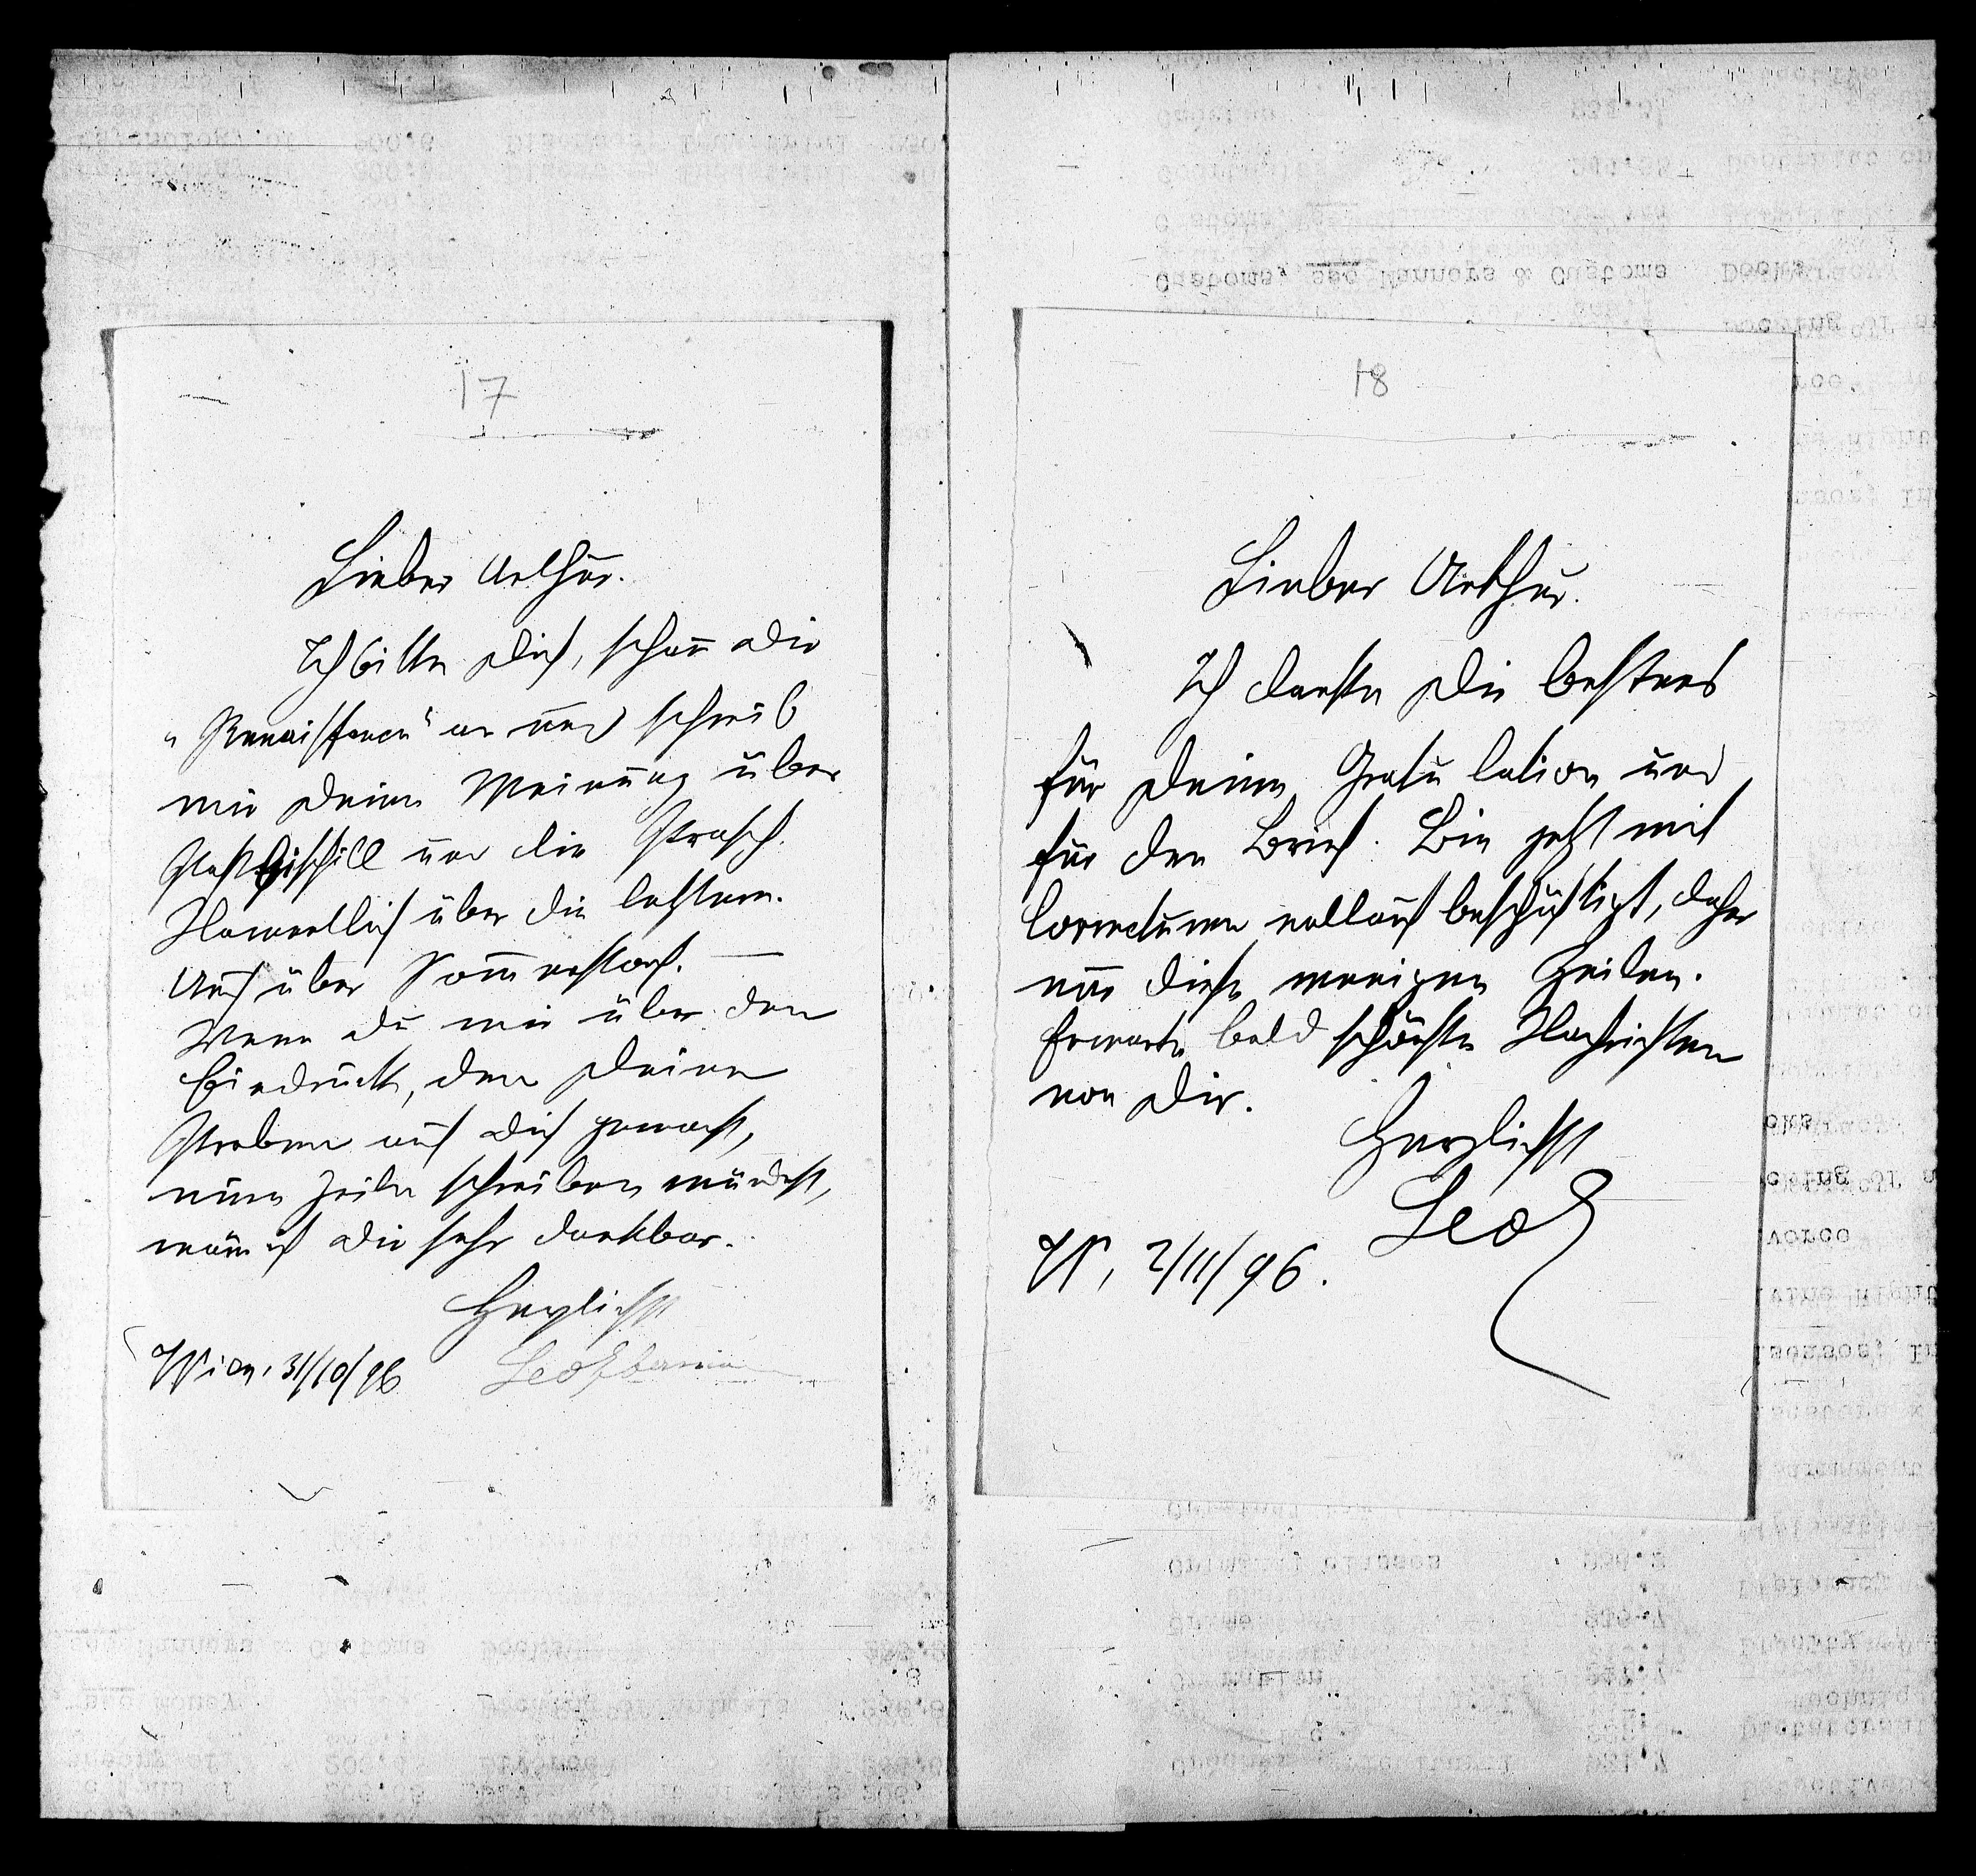 17
Lieber Arthur.
Ich bitte Dich, schau Dir
„Renaissance“ an und schreib
mir Deine Meinung über
und die Petrasch.
Namentlich über die letztere.
Auch über Sommerstorf. —
Wenn Du mir über den
Eindruck, den Deine
Proben auf Dich gemacht,
eine Zeile schreiben würdest,
wäre ich Dir sehr dankbar.
Herzlichst
Wien, 31/10/96 Leo Ebermann
18
Lieber Arthur.
Ich danke Dir bestens
für Deine Gratulation und
für den Brief. Bin jetzt mit
Correcturen vollauf beschäftigt, daher
nur diese wenigen Zeilen.
Erwarte bald schönste Nachrichten
von Dir.
Herzlichst
Leo E
W, 2/11/96.